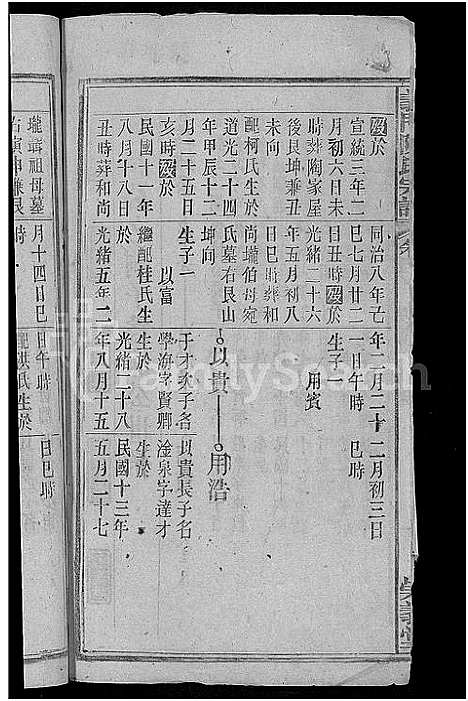 歿於
宣統三年二
月初六日未
時葬陶家屋
後艮坤兼丑
未向
配柯氏生於
道光二十四
年甲辰十二
月二十五日
亥時歿於
民國十一年
八月十八
丑時葬和尚
同治八年己
巳七月廿二
日丑時歿於
光緒二十六
年五月初八
日巳時葬和
尚壠伯母宛
氏墓右艮山
坤向
生子一
以富
繼配桂氏生
於
光緒五年二
年二月二十
一日午時
生子一
用賓
以貴
于才次子名
學海字賢卿
生於
光緒二十八
年八月十五
二月初三日
巳時
用浩
以貴長子名
淦泉字達才
生於
民國十三年
五月二十七
壠諱祖母墓
右寅申兼艮
月十四日巳
時
日午時
配洪氏生於
日巳時
FamilySearch